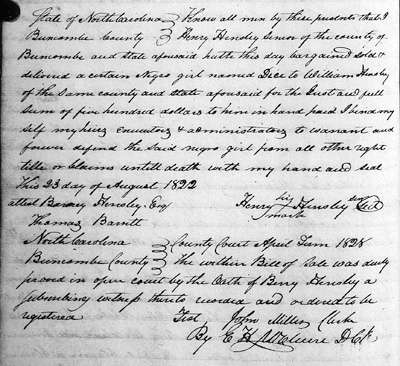 State of North Carolina } Know all men by these presents that I
Buncombe County } Henry Hensley Senor of the county of
Buncombe and state aforesaid hath this day bargained sold &
delivered a certain Negro girl named Dice to William Hensley
of the same county and state aforesaid for the Just and full
sum of five hundred dollars to him in hand paid I bind my
self my hiers Executors & administrators to warrant and
forever defend the said negro girl from all other right
title or blaims untill death with my hand and seal
This 23 day of August 1822
attest Barney Hensley. Esq Henry his Hensley senr Seal
mark
Thomas Barritt
North Carolina } County Court April Term 1828
Buncombe County } The within Bill of Sale was duly
proved in open court by the Oath of Berry Hensley a
subscribing witness thereto recorded and ordered to be
registered Test John Miller Clerk
By E H McClure D.C.k.